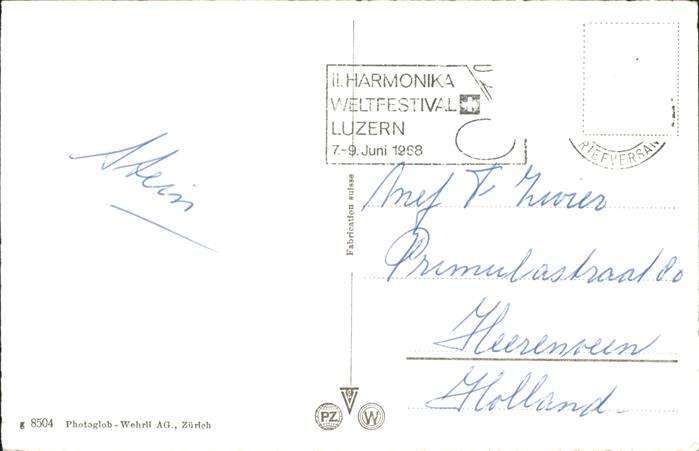 II. HARMONIKA
WELTFESTIVAL
LUZERN
7.-9. Juni 1968
RIEFVERSAN
Stein
Fabrication suisse
F Zwier
Primulastraat 80
Heerenveen
Holland
PZ
W
g 8504 Photoglob-Wehrli AG., Zürich